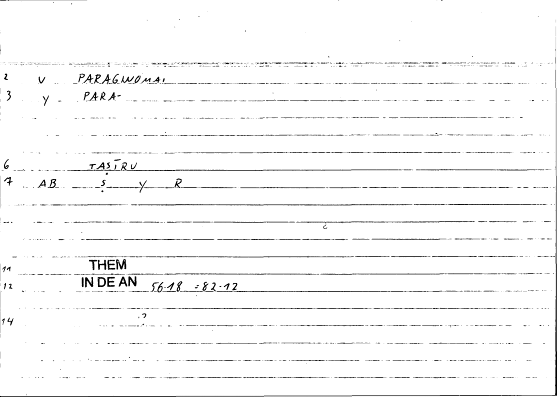 2 V PARAGINOMAI
3 Y PARA-
6 TASĪRU
7 AB Ṣ Y R
11 THEM
12 IN DE AN 56-18 = 82-12
14 ?